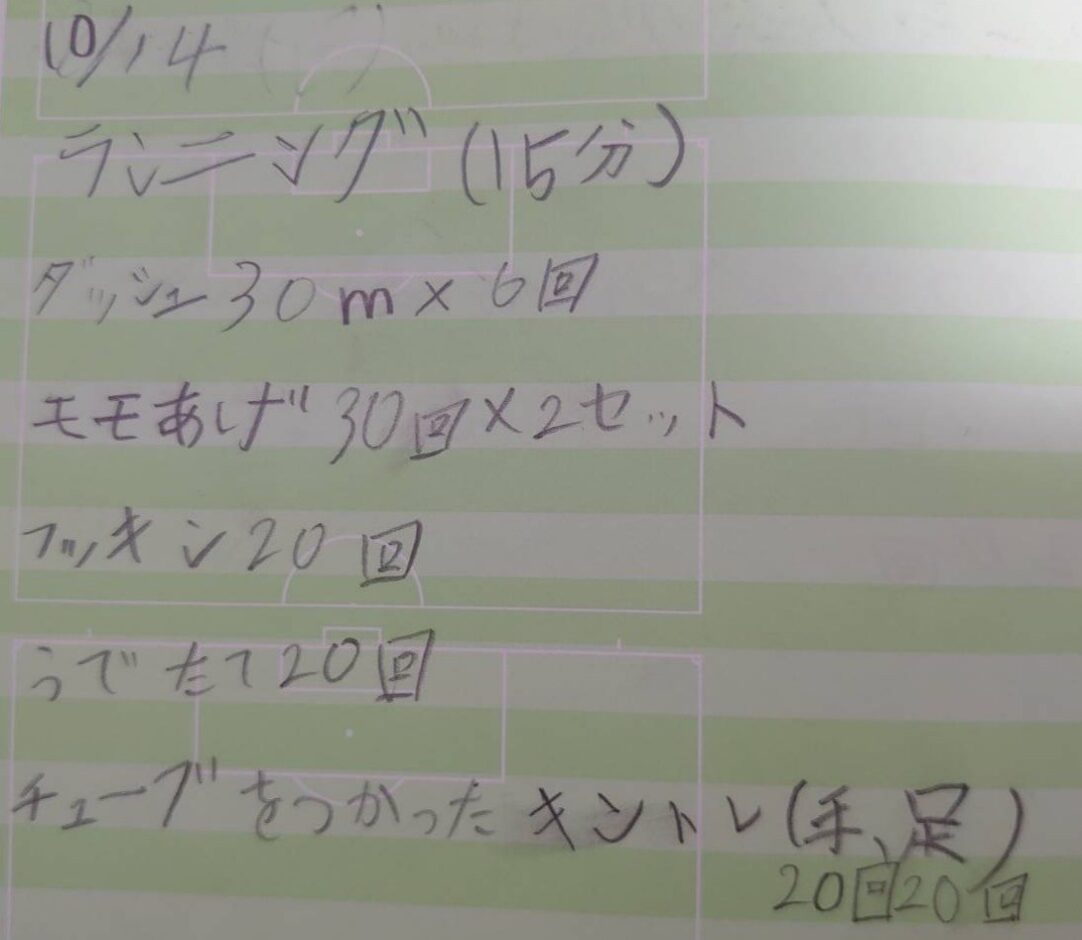 10/14
ランニング(15分)
ダッシュ30m×6回
モモあげ30回×2セット
フッキン20回
うでたて20回
チューブをつかったキントレ(手、足)
20回20回